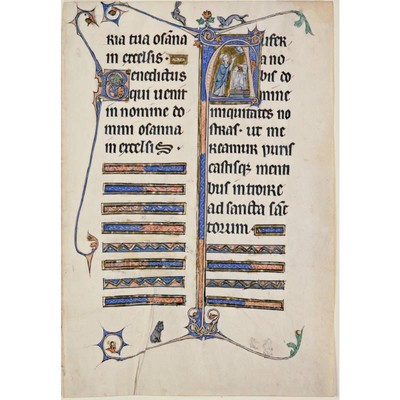 ria tua osāna
in excelsis.
Benedictus
qui uenit
in nomine do
mini osanna
in excelsis
Aufer
a no
bis do
mine
iniquitates no
stras. ut me
reamur puris
castisque menti
bus introire
ad sancta sanc
torum.